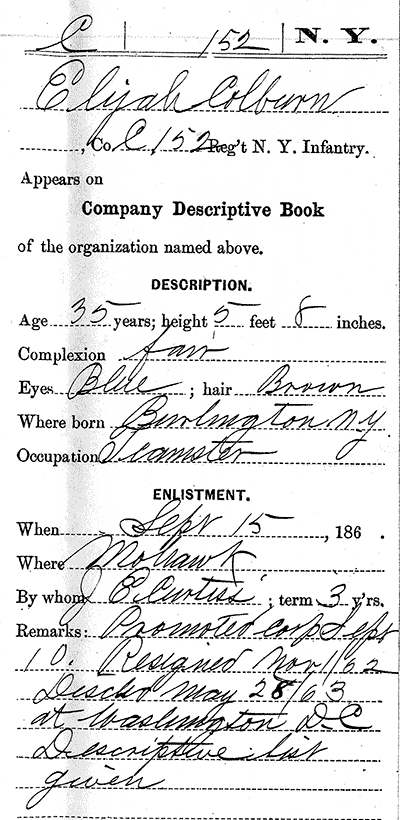 C | 152 | N. Y.
Elijah Colburn
, Co. C, 152 Reg't N. Y. Infantry.
Appears on
Company Descriptive Book
of the organization named above.
DESCRIPTION.
Age 35 years; height 5 feet 8 inches.
Complexion fair
Eyes Blue ; hair Brown
Where born Burlington NY
Occupation Teamster
ENLISTMENT.
When Sept 15 , 186 .
Where Mohawk
By whom E. Curtiss ; term 3 y'rs.
Remarks: Promoted corp Sept
10. Resigned Nov 1/62
Dischd May 28/63
at Washington D.C
Descriptive list
given